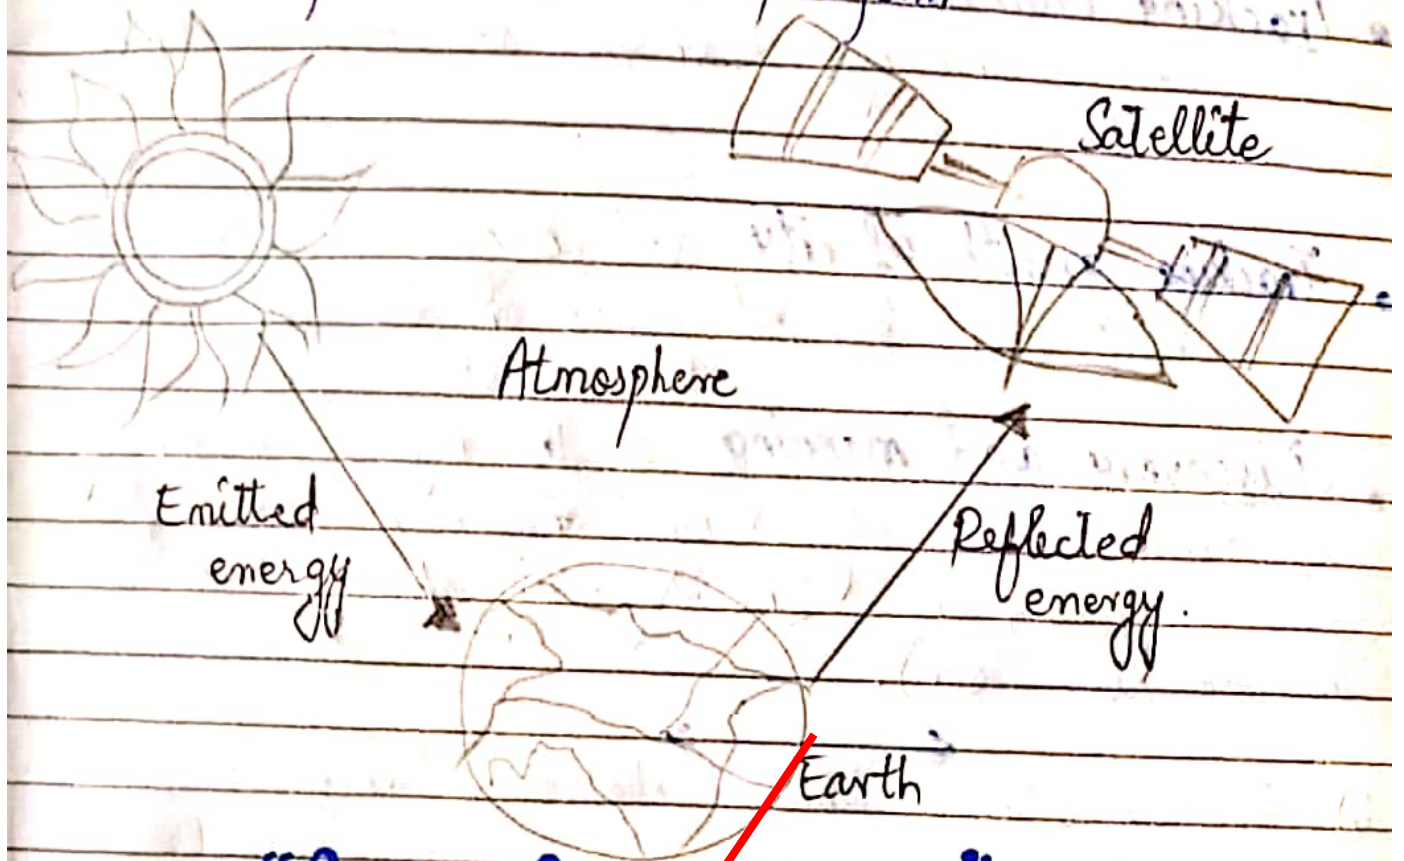 Satellite
Atmosphere
Emitted
energy
Reflected
energy.
Earth